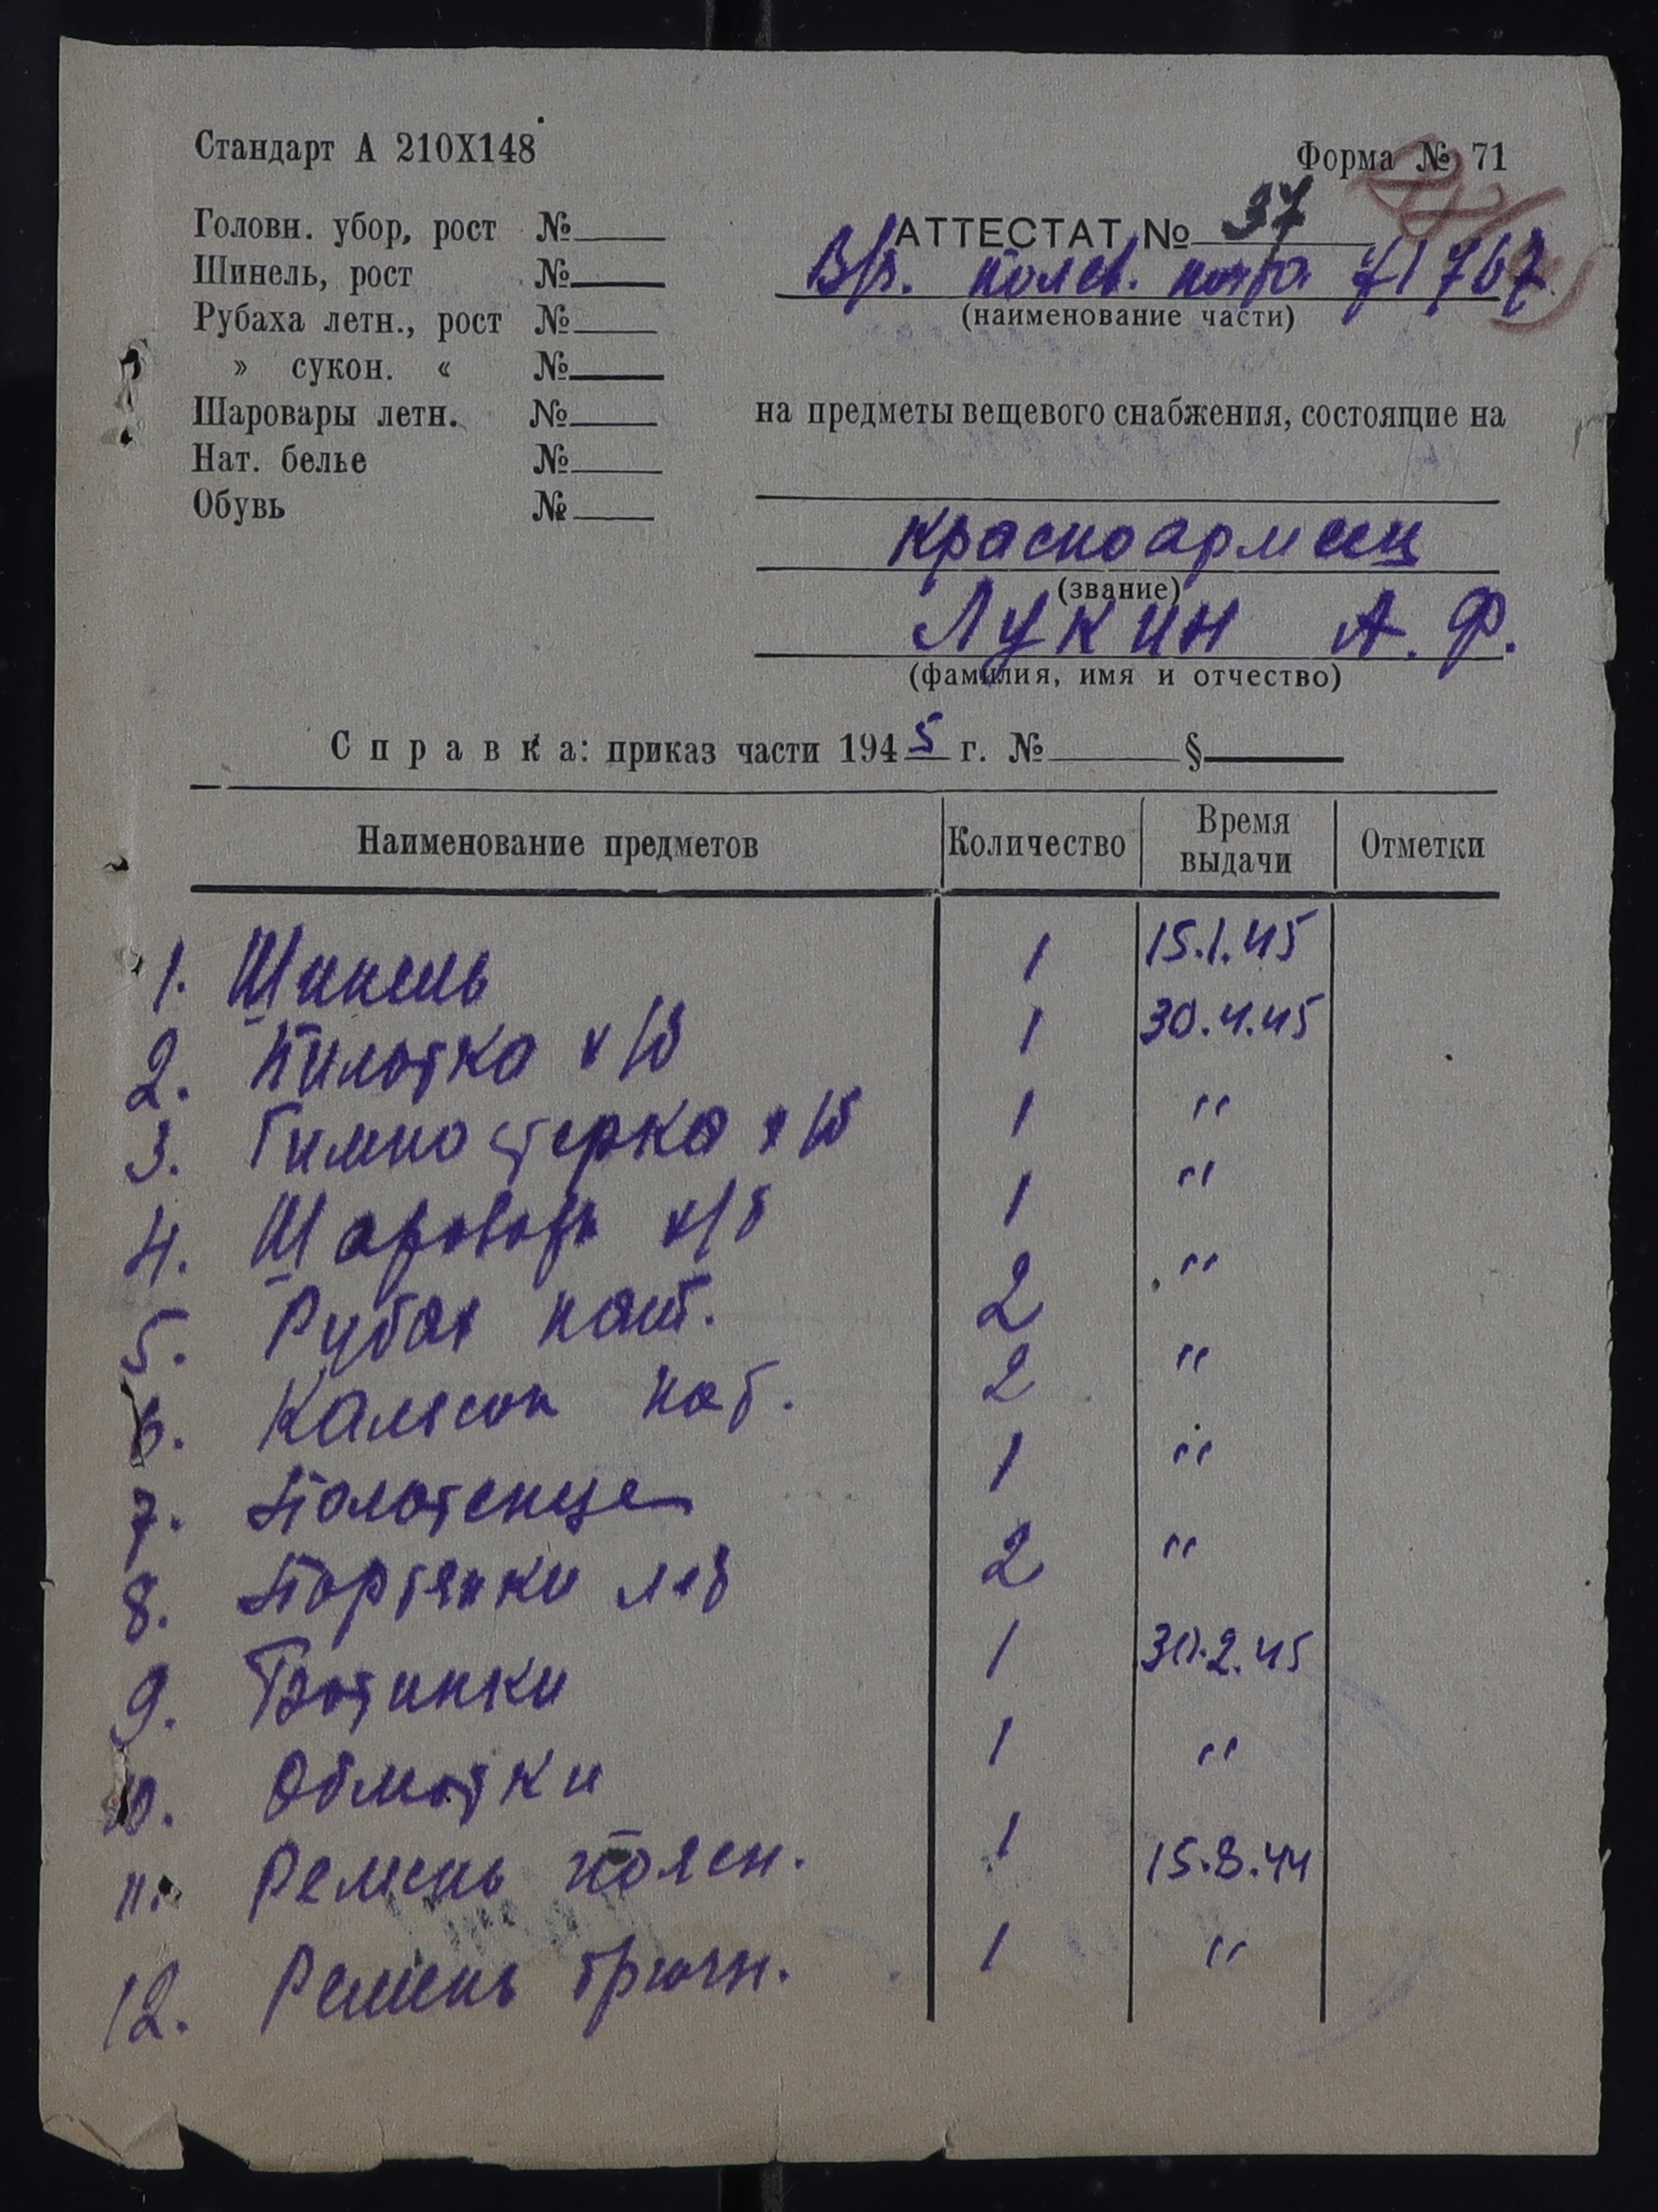 Стандарт А 210Х148
Форма № 71
Головн. убор, рост №
Шинель, рост №
Рубаха летн., рост №
» сукон. « №
Шаровары летн. №
Нат. белье №
Обувь №
АТТЕСТАТ № 37
В/ч. полев. почта 71767
(наименование части)
на предметы вещевого снабжения, состоящие на
красноармеец
(звание)
Лукин А. Ф.
(фамилия, имя и отчество)
Справка: приказ части 1945 г. № §
Наименование предметов Количество Время выдачи Отметки
1. Шинель 1 15.1.45
2. Пилотка х/б 1 30.4.45
3. Гимностерка х/б 1 "
4. Шаровары х/б 1 "
5. Рубах нат. 2 "
6. Кальсон нат. 2 "
7. Полотенце 1 "
8. Портянки лет 2 "
9. Ботинки 1 30.2.45
10. Обмотки 1 "
11. Ремень поясн. 1 15.8.44
12. Ремень брючн. 1 "